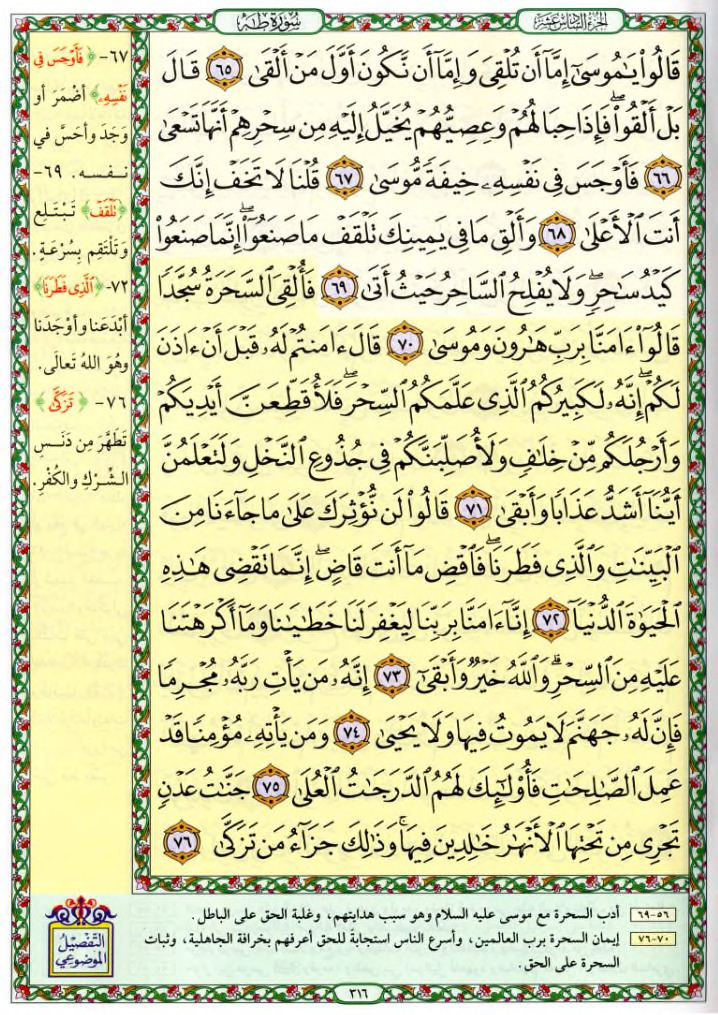 الجزء السادس عشر
سورة طه
قَالُوا۟ يَـٰمُوسَىٰٓ إِمَّآ أَن تُلْقِىَ وَإِمَّآ أَن نَّكُونَ أَوَّلَ مَنْ أَلْقَىٰ ٦٥ قَالَ
بَلْ أَلْقُوا۟ۖ فَإِذَا حِبَالُهُمْ وَعِصِيُّهُمْ يُخَيَّلُ إِلَيْهِ مِن سِحْرِهِمْ أَنَّهَا تَسْعَىٰ
٦٦ فَأَوْجَسَ فِى نَفْسِهِۦ خِيفَةً مُّوسَىٰ ٦٧ قُلْنَا لَا تَخَفْ إِنَّكَ
أَنتَ ٱلْأَعْلَىٰ ٦٨ وَأَلْقِ مَا فِى يَمِينِكَ تَلْقَفْ مَا صَنَعُوٓا۟ۖ إِنَّمَا صَنَعُوا۟
كَيْدُ سَـٰحِرٍۖ وَلَا يُفْلِحُ ٱلسَّاحِرُ حَيْثُ أَتَىٰ ٦٩ فَأُلْقِىَ ٱلسَّحَرَةُ سُجَّدًا
قَالُوٓا۟ ءَامَنَّا بِرَبِّ هَـٰرُونَ وَمُوسَىٰ ٧٠ قَالَ ءَامَنتُمْ لَهُۥ قَبْلَ أَنْ ءَاذَنَ
لَكُمْۖ إِنَّهُۥ لَكَبِيرُكُمُ ٱلَّذِى عَلَّمَكُمُ ٱلسِّحْرَۖ فَلَأُقَطِّعَنَّ أَيْدِيَكُمْ
وَأَرْجُلَكُم مِّنْ خِلَـٰفٍ وَلَأُصَلِّبَنَّكُمْ فِى جُذُوعِ ٱلنَّخْلِ وَلَتَعْلَمُنَّ
أَيُّنَآ أَشَدُّ عَذَابًا وَأَبْقَىٰ ٧١ قَالُوا۟ لَن نُّؤْثِرَكَ عَلَىٰ مَا جَآءَنَا مِنَ
ٱلْبَيِّنَـٰتِ وَٱلَّذِى فَطَرَنَاۖ فَٱقْضِ مَآ أَنتَ قَاضٍۖ إِنَّمَا تَقْضِى هَـٰذِهِ
ٱلْحَيَوٰةَ ٱلدُّنْيَآ ٧٢ إِنَّآ ءَامَنَّا بِرَبِّنَا لِيَغْفِرَ لَنَا خَطَـٰيَـٰنَا وَمَآ أَكْرَهْتَنَا
عَلَيْهِ مِنَ ٱلسِّحْرِۗ وَٱللَّهُ خَيْرٌ وَأَبْقَىٰٓ ٧٣ إِنَّهُۥ مَن يَأْتِ رَبَّهُۥ مُجْرِمًا
فَإِنَّ لَهُۥ جَهَنَّمَ لَا يَمُوتُ فِيهَا وَلَا يَحْيَىٰ ٧٤ وَمَن يَأْتِهِۦ مُؤْمِنًا قَدْ
عَمِلَ ٱلصَّـٰلِحَـٰتِ فَأُو۟لَـٰٓئِكَ لَهُمُ ٱلدَّرَجَـٰتُ ٱلْعُلَىٰ ٧٥ جَنَّـٰتُ عَدْنٍ
تَجْرِى مِن تَحْتِهَا ٱلْأَنْهَـٰرُ خَـٰلِدِينَ فِيهَاۚ وَذَٰلِكَ جَزَآءُ مَن تَزَكَّىٰ ٧٦
٦٧- ﴿فَأَوْجَسَ فِى
نَفْسِهِۦ﴾ أضْمَرَ أو
وَجَدَ وأحَسَّ في
نـفـسه. ٦٩-
﴿تَلْقَفْ﴾ تَبْتَلِع
وَتَلْتَقِم بِسُرْعَةٍ.
٧٢- ﴿ٱلَّذِى فَطَرَنَا﴾
أَبْدَعَنا وأوْجَدَنا
وهُوَ اللهُ تَعالَى.
٧٦- ﴿تَزَكَّىٰ﴾
تَطَهَّرَ مِن دَنَسِ
الشِّرْكِ والكُفْرِ.
التفصيل
الموضوعي
٥٦-٦٩ أدب السحرة مع موسى عليه السلام وهو سبب هدايتهم، وغلبة الحق على الباطل.
٧٠-٧٦ إيمان السحرة برب العالمين، وأسرع الناس استجابةً للحق أعرفهم بخرافة الجاهلية، وثبات
السحرة على الحق.
٣١٦